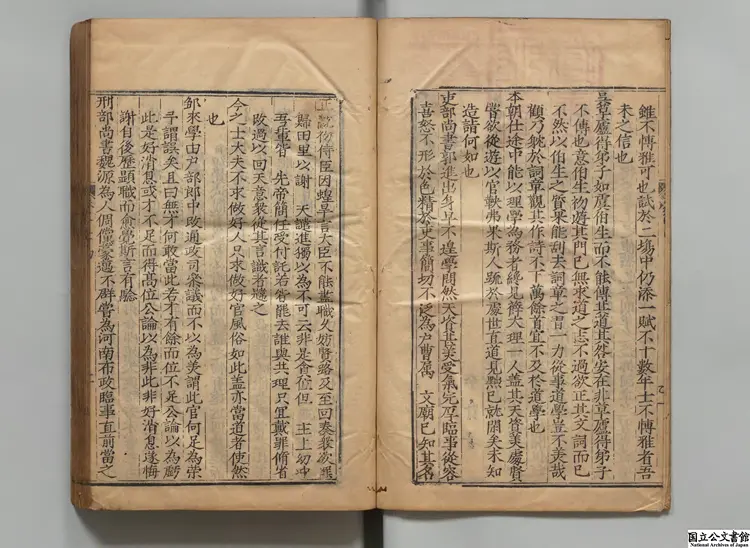 雖不博雅可也試於二場中仍添一賦不十數年士不博雅者吾
未之信也
吳草廬得弟子如虞伯生而不能傳其道其咎安在非草廬得弟子
不傳也意伯生物遊其門已無求道之志不過欲正其文詞而已
不然以伯生之資果能刮去詞章之習一力從事道學豈不美哉
顧乃躭於詞章觀其作詩不下萬餘首宜不及於道學也
本朝仕途中能以理學為務者纔見薛大理一人蓋其天資美處賢
嘗欲從遊以官軼弗果斯人疏於處世直道見黜已就閑矣未知
造詣何如也
吏部尚書郭進出身早不遑學問然天資甚美受氣完厚臨事從容
喜怒不形於色精於吏事簡切不泛為戶曹属 文廟已知其名
正統初侍臣因蝗旱言大臣不能盡職久妨賢路及至回奏衆欲罷
歸田里以謝 天譴進獨以為不可云非是貪位但 主上幼冲
吾輩皆 先帝簡任受付託若皆罷去誰與共理只宜戴罪脩省
改過以回天意衆從其言識者韙之
今之士大夫不求做好人只求做好官風俗如此盖亦當道者使然
也
鄒來學由户部郎中改通政司叅議而不以為美謂此官何足為榮
予謂誤矣且曰無才何敢當此若才有餘而位不足公論以為虧
此是好消息或才不足而得高位公論以為非此非好消息遂悔
謝自後歷顯職而愈覺斯言有驗
刑部尚書魏源為人倜儻豪邁不群嘗為河南布政臨事直前當之
国立公文書館
National Archives of Japan